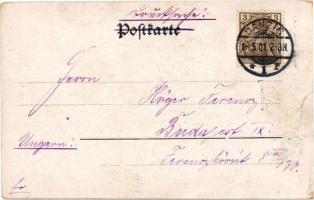 Drucksache!
Postkarte
3 3
1-5.01.2-3N
Herrn
Höger Ferencz
Budapest IX.
Ungarn!
Ferenczkörút